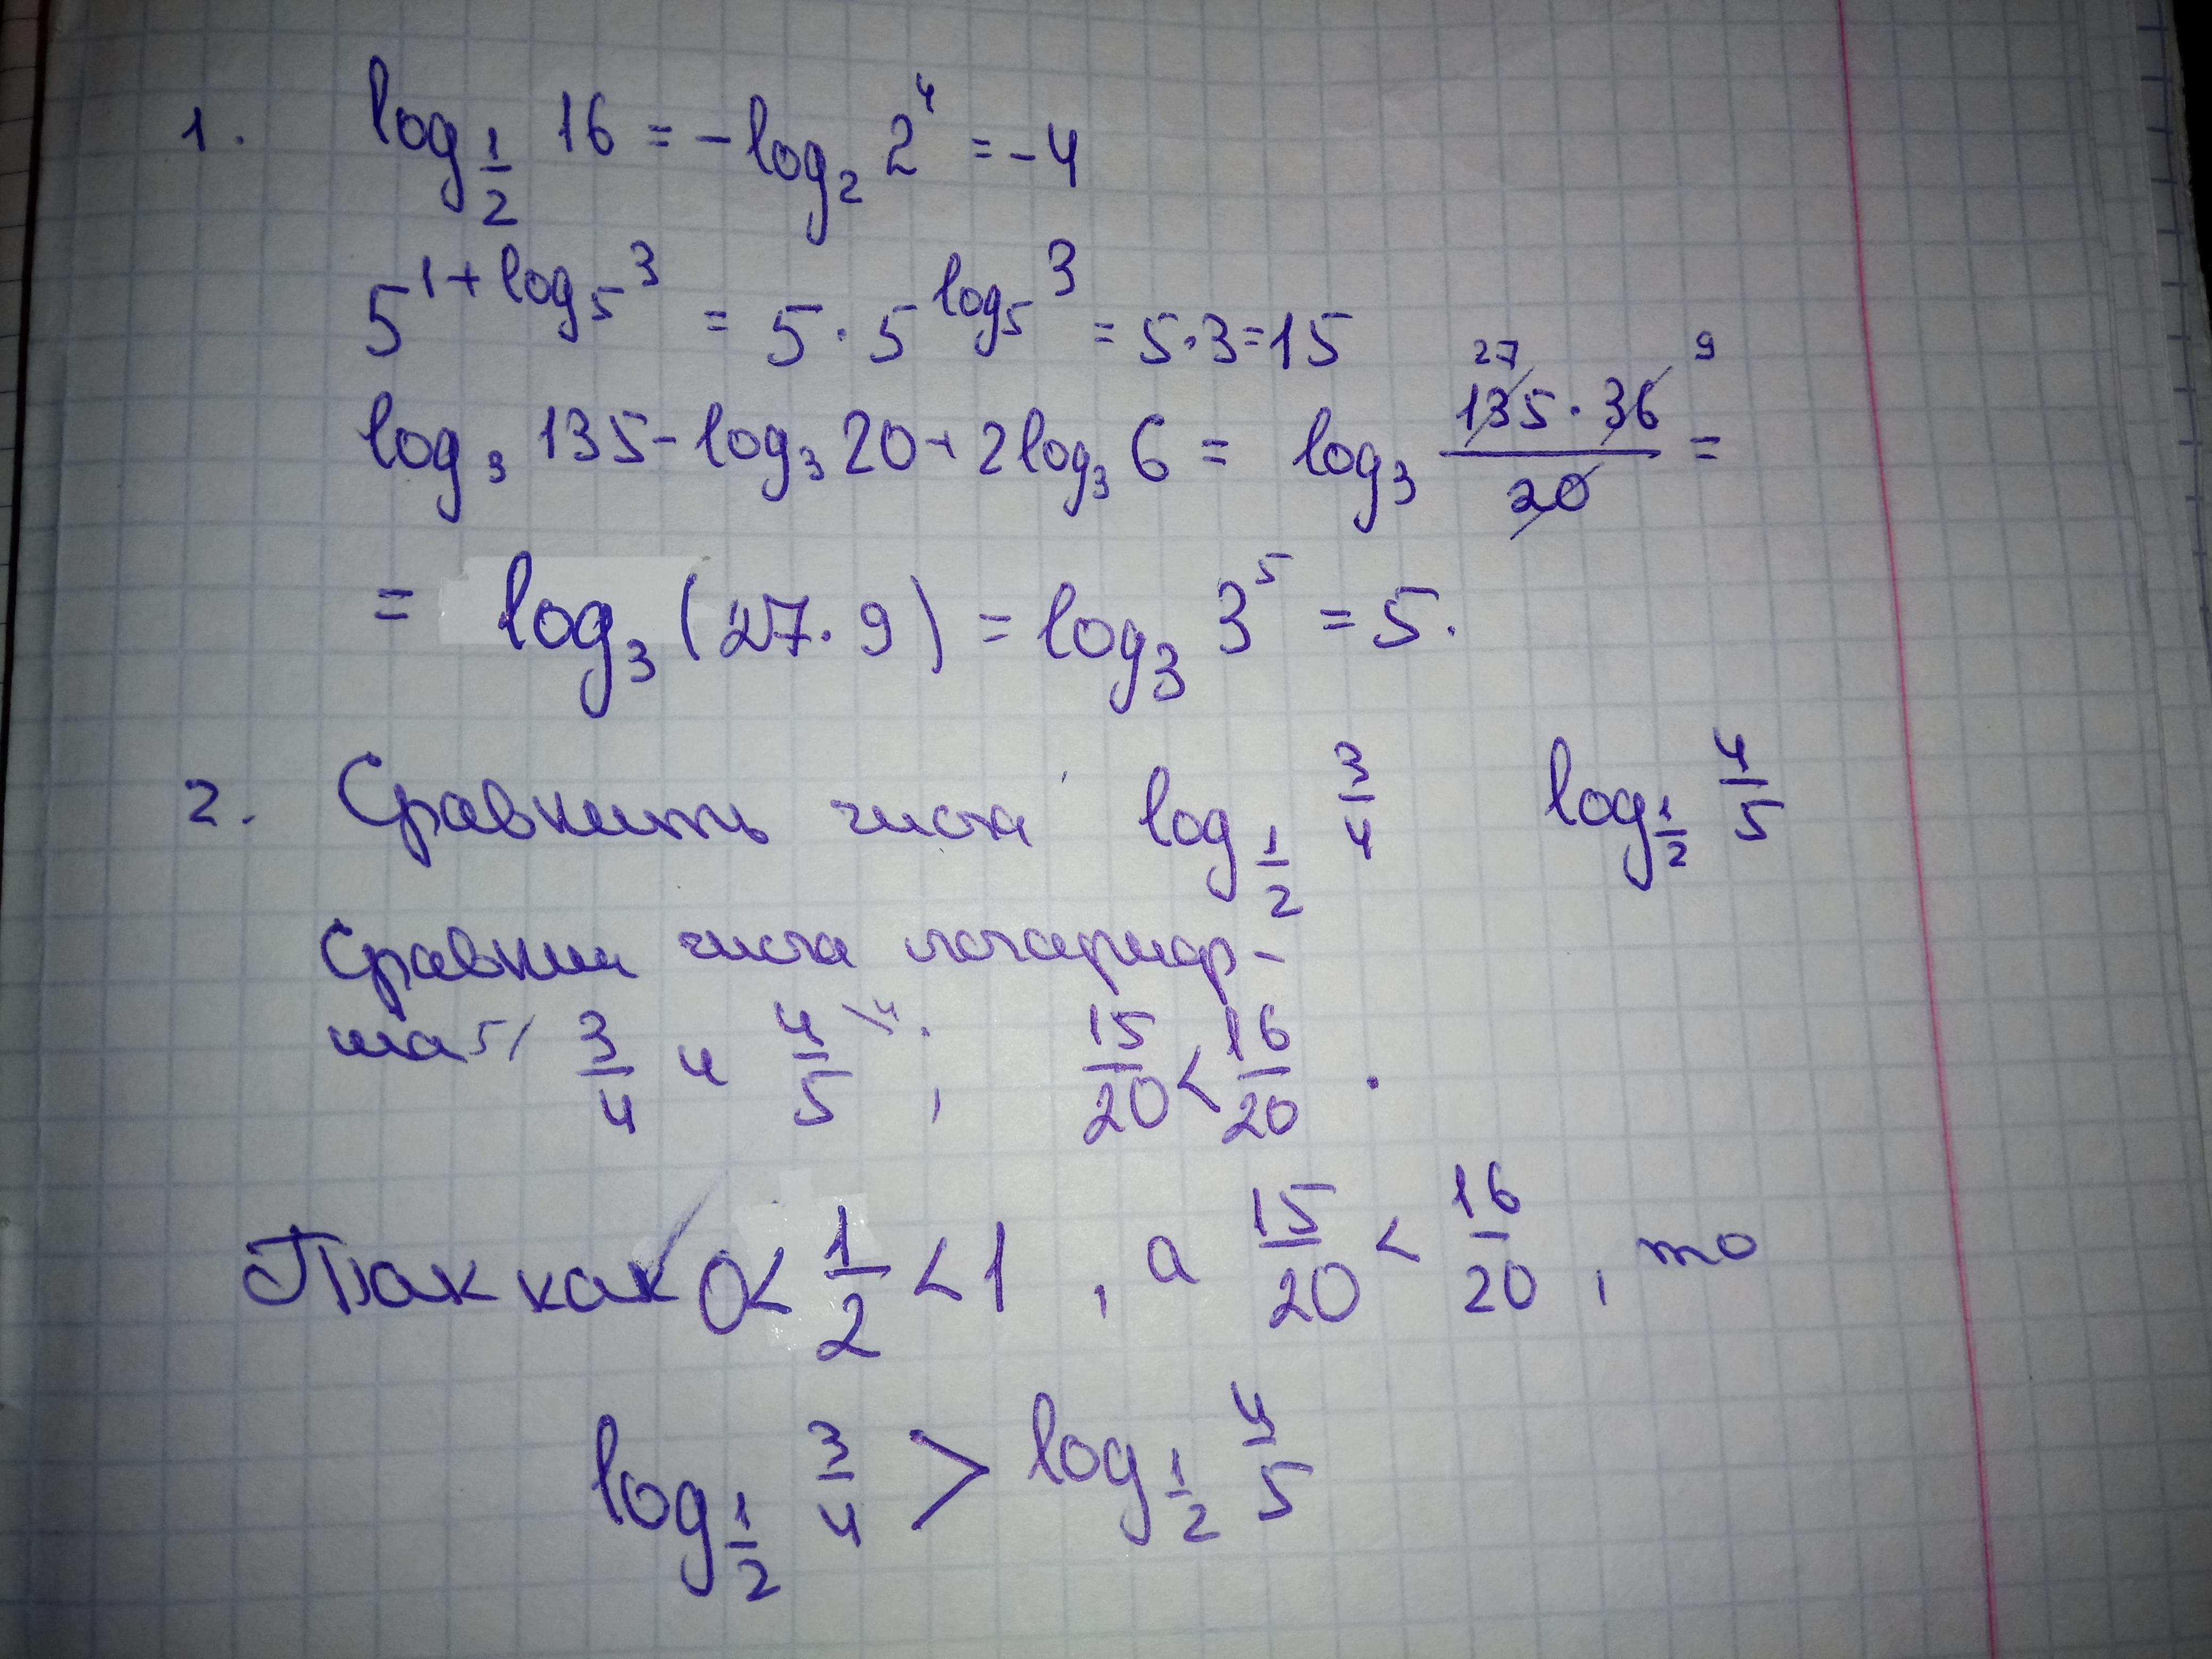 1. log_{1/2} 16 = -log_2 2^4 = -4
5^{1+log_5 3} = 5·5^{log_5 3} = 5·3=15
log_3 135 - log_3 20 + 2log_3 6 = log_3 \frac{135^{27}·36^{9}}{20} =
= log_3 (27·9) = log_3 3^5 = 5.
2. Сравнить числа log_{1/2} 3/4 log_{1/2} 4/5
Сравним числа логариф-
ма 5/ 3/4 и 4/5 \4. , 15/20 < 16/20 .
Так как 0 < 1/2 < 1, а 15/20 < 16/20, то
log_{1/2} 3/4 > log_{1/2} 4/5